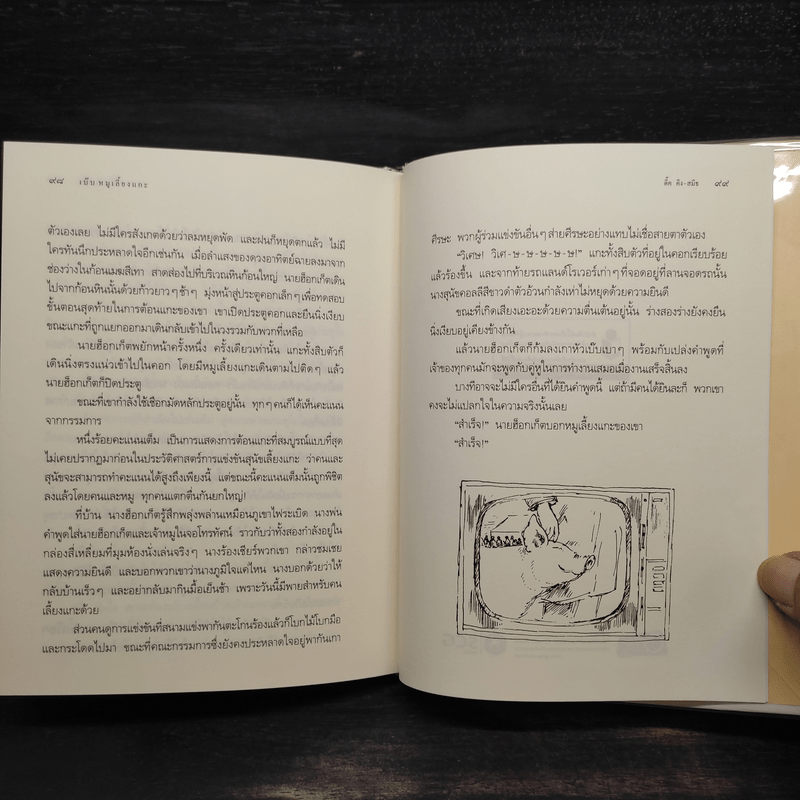 ๙๘ เบ๊บ หมูเลี้ยงแกะ
ตัวเองเลย ไม่มีใครสังเกตด้วยว่าลมหยุดพัด และฝนก็หยุดตกแล้ว ไม่มี
ใครทันนึกประหลาดใจอีกเช่นกัน เมื่อลำแสงของดวงอาทิตย์ฉายลงมาจาก
ช่องว่างในก้อนเมฆสีเทา สาดส่องไปที่บริเวณหินก้อนใหญ่ นายฮ็อกเก็ตเดิน
ไปจากก้อนหินนั้นด้วยก้าวยาวๆ ช้าๆ มุ่งหน้าสู่ประตูคอกเล็กๆ เพื่อทดสอบ
ขั้นตอนสุดท้ายในการต้อนแกะของเขา เขาเปิดประตูคอกและยืนนิ่งเงียบ
ขณะแกะที่ถูกแยกออกมาเดินกลับเข้าไปในวงรวมกับพวกที่เหลือ
นายฮ็อกเก็ตพยักหน้าครั้งหนึ่ง ครั้งเดียวเท่านั้น แกะทั้งสิบตัวก็
เดินนิ่งตรงแน่วเข้าไปในคอก โดยมีหมูเลี้ยงแกะเดินตามไปติดๆ แล้ว
นายฮ็อกเก็ตก็ปิดประตู
ขณะที่เขากำลังใช้เชือกมัดหลักประตูอยู่นั้น ทุกๆ คนก็ได้เห็นคะแนน
จากกรรมการ
หนึ่งร้อยคะแนนเต็ม เป็นการแสดงการต้อนแกะที่สมบูรณ์แบบที่สุด
ไม่เคยปรากฏมาก่อนในประวัติศาสตร์การแข่งขันสุนัขเลี้ยงแกะ ว่าคนและ
สุนัขจะสามารถทำคะแนนได้สูงถึงเพียงนี้ แต่ขณะนี้คะแนนเต็มนั้นถูกพิชิต
ลงแล้วโดยคนและหมู ทุกคนแตกตื่นกันยกใหญ่!
ที่บ้าน นางฮ็อกเก็ตรู้สึกพลุ่งพล่านเหมือนภูเขาไฟระเบิด นางพ่น
คำพูดใส่นายฮ็อกเก็ตและเจ้าหมูในจอโทรทัศน์ ราวกับว่าทั้งสองกำลังอยู่ใน
กล่องสี่เหลี่ยมที่มุมห้องนั่งเล่นจริงๆ นางร้องเชียร์พวกเขา กล่าวชมเชย
แสดงความยินดี และบอกพวกเขาว่านางภูมิใจแค่ไหน นางบอกด้วยว่าให้
กลับบ้านเร็วๆ และอย่ากลับมากินมื้อเย็นช้า เพราะวันนี้มีพายสำหรับคน
เลี้ยงแกะด้วย
ส่วนคนดูการแข่งขันที่สนามแข่งพากันตะโกนร้องแล้วก็โบกไม้โบกมือ
และกระโดดไปมา ขณะที่คณะกรรมการซึ่งยังคงประหลาดใจอยู่พากันเกา
ดิ๊ค คิง-สมิธ ๙๙
ศีรษะ พวกผู้ร่วมแข่งขันอื่นๆ ส่ายศีรษะอย่างแทบไม่เชื่อสายตาตัวเอง
“วิเศษ! วิเศ-ษ-ษ-ษ-ษ-ษ!” แกะทั้งสิบตัวที่อยู่ในคอกเรียบร้อย
แล้วร้องขึ้น และจากท้ายรถแลนด์โรเวอร์เก่าๆ ที่จอดอยู่ที่ลานจอดรถนั้น
นางสุนัขคอลลีสีขาวดำตัวอ้วนกำลังเห่าไม่หยุดด้วยความยินดี
ขณะที่เกิดเสียงเอะอะด้วยความตื่นเต้นอยู่นั้น ร่างสองร่างยังคงยืน
นิ่งเงียบอยู่เคียงข้างกัน
แล้วนายฮ็อกเก็ตก็ก้มลงเกาหัวเบ๊บเบาๆ พร้อมกับเปล่งคำพูดที่
เจ้าของทุกคนมักจะพูดกับคู่หูในการทำงานเสมอเมื่องานเสร็จสิ้นลง
บางทีอาจจะไม่มีใครอื่นที่ได้ยินคำพูดนี้ แต่ถ้ามีคนได้ยินละก็ พวกเขา
คงจะไม่แปลกใจในความจริงนั้นเลย
“สำเร็จ!” นายฮ็อกเก็ตบอกหมูเลี้ยงแกะของเขา
“สำเร็จ!”